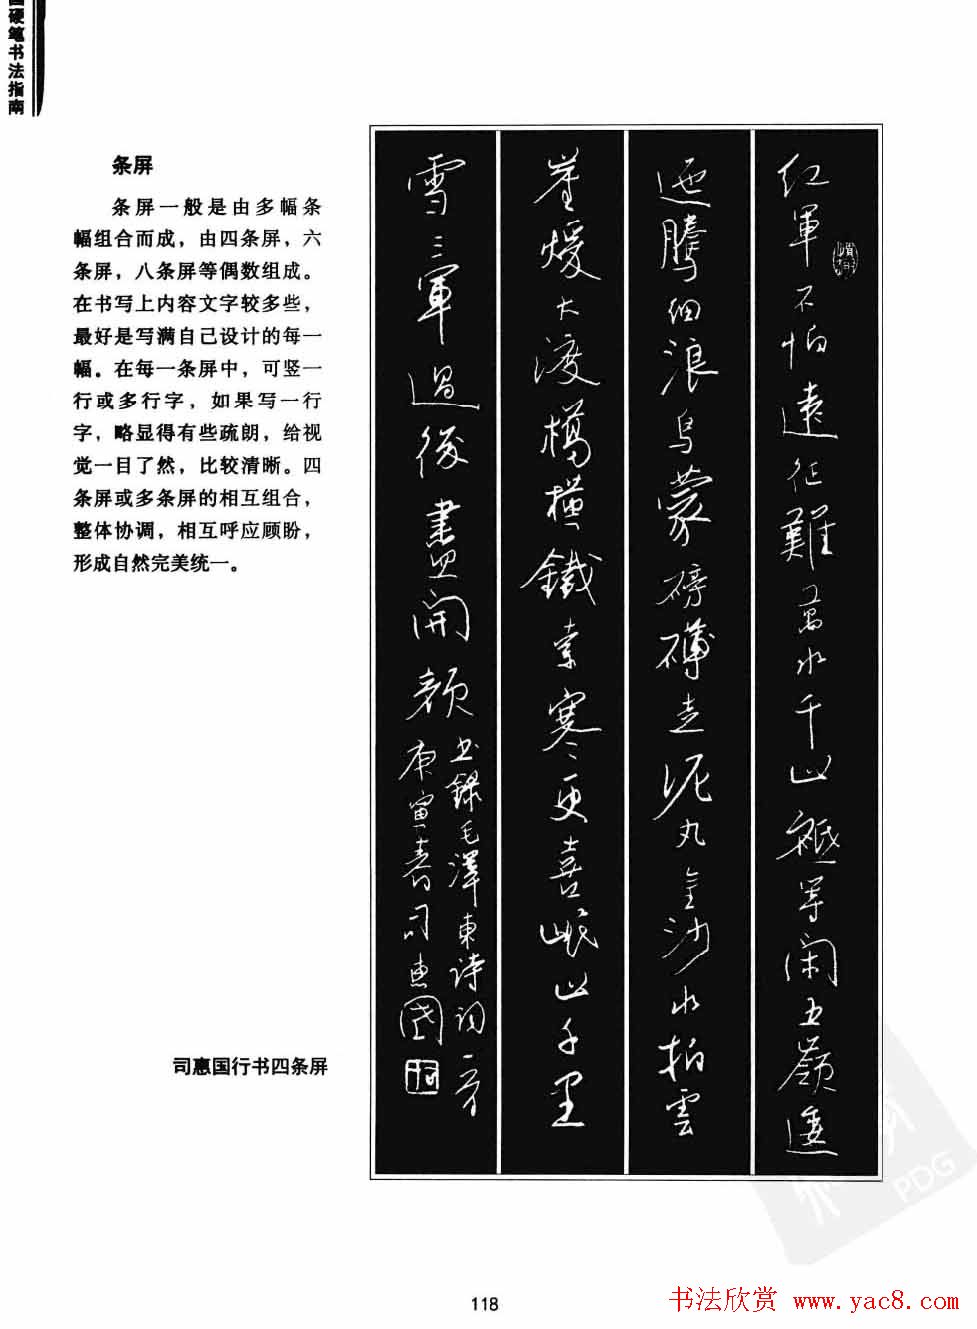 硬笔书法指南
条屏
条屏一般是由多幅条
幅组合而成，由四条屏，六
条屏，八条屏等偶数组成。
在书写上内容文字较多些，
最好是写满自己设计的每一
幅。在每一条屏中，可竖一
行或多行字，如果写一行
字，略显得有些疏朗，给视
觉一目了然，比较清晰。四
条屏或多条屏的相互组合，
整体协调，相互呼应顾盼，
形成自然完美统一。
紅軍不怕遠征難萬水千山祗等闲五嶺逶
迤騰细浪烏蒙磅礴走泥丸金沙水拍雲
崖煖大渡橋横鐵索寒更喜岷山千里
雪三軍過後盡開颜
书録毛澤東诗词一首
庚寅春司惠國
司惠国行书四条屏
118
PDG
书法欣赏 www.yac8.com